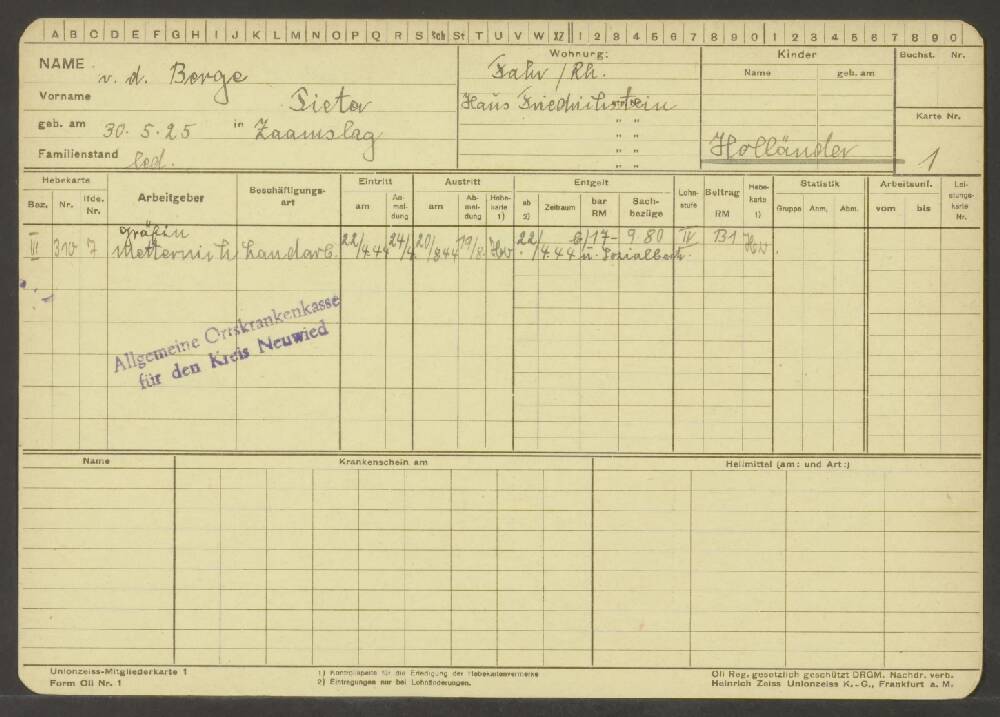 A B C D E F G H I J K L M N O P Q R S Sch St T U V W XZ 1 2 3 4 5 6 7 8 9 0 1 2 3 4 5 6 7 8 9 0
NAME v. d. Borge
Vorname Pieter
geb. am 30. 5. 25 in Zaamslag
Familienstand led.
Wohnung:
Fahr / Rh.
Haus Friedrichstein
" "
" "
" "
Kinder
Name geb. am
Holländer
Buchst. Nr.
Karte Nr.
1
Hebekarte
Bez. Nr. lfde. Nr.
Arbeitgeber
Beschäftigungs-
art
Eintritt
am An-mel-dung
Austritt
am Ab-mel-dung Hebe-karte 1)
Entgelt
ab 2) Zeitraum bar RM Sach-bezüge
Lohn-stufe
Beitrag
RM
Hebe-karte 1)
Statistik
Gruppe Anm. Abm.
Arbeitsunf.
vom bis
Lei-stungs-karte Nr.
Gräfin
VI 310 7 Metternich Landarb. 22/4.44 24/4 20/8 44 19/8. 22/4.44 17- 9.80 IV
Allgemeine Ortskrankenkasse
für den Kreis Neuwied
Name Krankenschein am Heilmittel (am: und Art:)
Unionzeiss-Mitgliederkarte 1
Form Oli Nr. 1
1) Kontrollspalte für die Erledigung der Hebekartenvermerke
2) Eintragungen nur bei Lohnänderungen.
Oli Reg. gesetzlich geschützt DRGM. Nachdr. verb.
Heinrich Zeiss Unionzeiss K.-G., Frankfurt a. M.